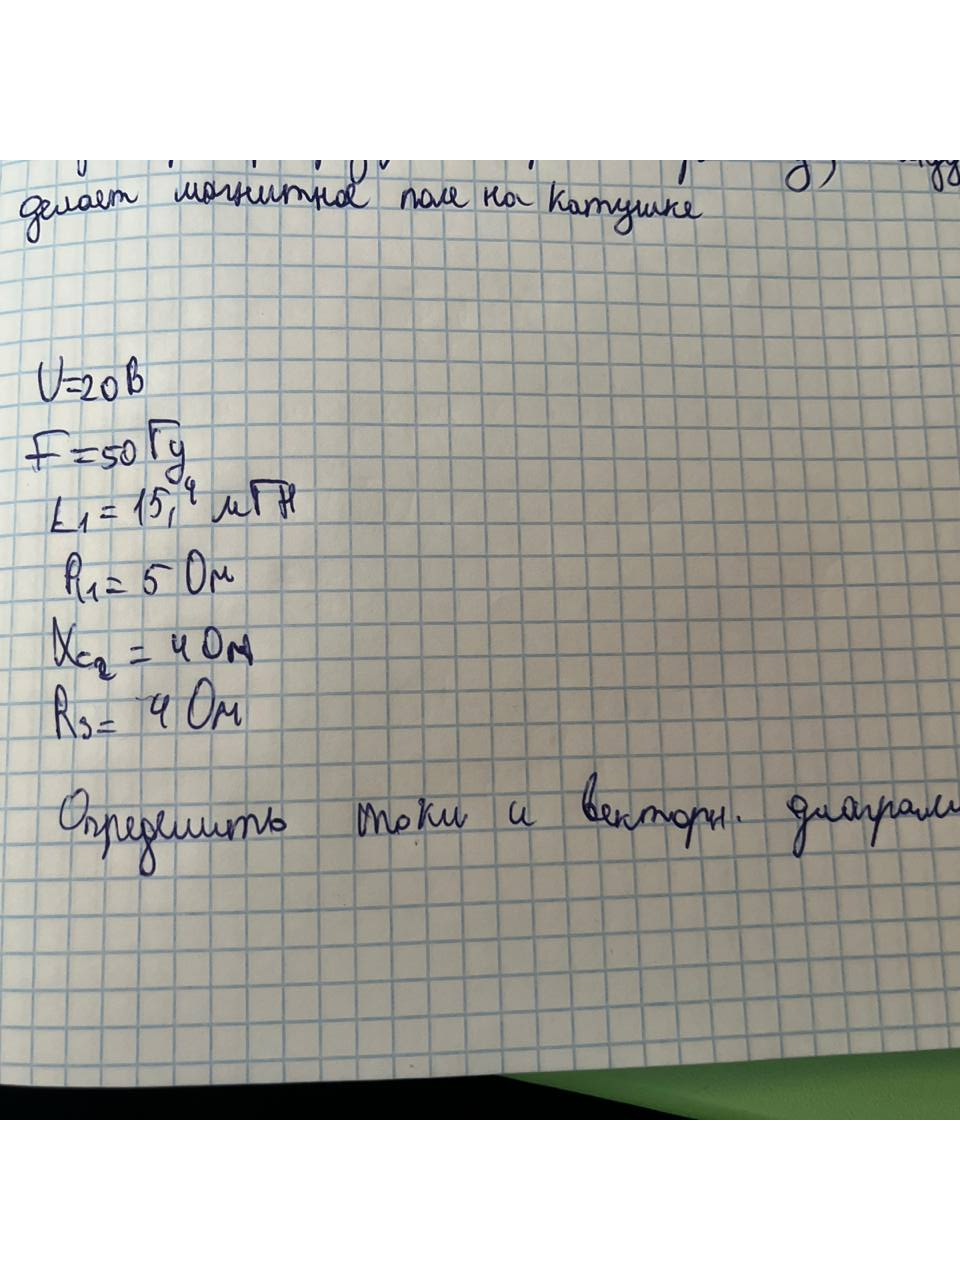 делает магнитное поле на катушке
U=20В
F=50Гц
L1=15,4 мГН
R1=5 Ом
Xc2=4 Ом
R3=4 Ом
Определить токи и векторн.